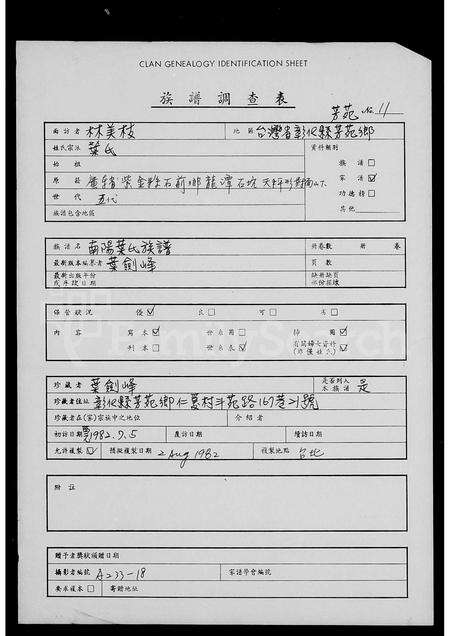 CLAN GENEALOGY IDENTIFICATION SHEET
族譜調查表
芳苑 No. 11
面訪者 林美枝 地區 台灣省彰化縣芳苑鄉
姓氏宗派 葉氏 資料類別
始祖 族譜
原籍 石坑 家譜
世代 五代 功德榜
族譜包含地區 其他
族譜名 南陽葉氏族譜 冊卷數 冊 卷
最新版本編纂者 葉劍峰 頁數
最新出版年份或手鈔日期 缺冊缺頁
保管狀況 優 良 可 劣
內容 寫本 世系圖 詩圖
刊本 世系表
珍藏者 葉劍峰 是否列入本族譜 是
珍藏者住址 彰化縣芳苑鄉仁愛村斗苑路167巷21號
珍藏者在(家)宗族中之地位 介紹者
初訪日期 1982.7.5 覆訪日期 續訪日期
允許複製 預擬複製日期 2 Aug 1982 複製地點 台北
附註
贈予者獎狀頒贈日期
攝影者編號 A233-18 家譜學會編號
要求複本 寄贈地址
FamilySearch